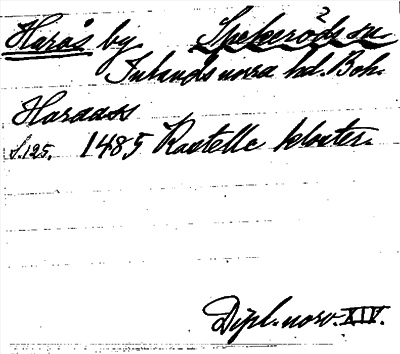 Harås by Spekeröds sn.
Inlands norra hd. Boh.
Haraass
s.125. 1485 Kastelle kloster.
Dipl. norv. XIV.